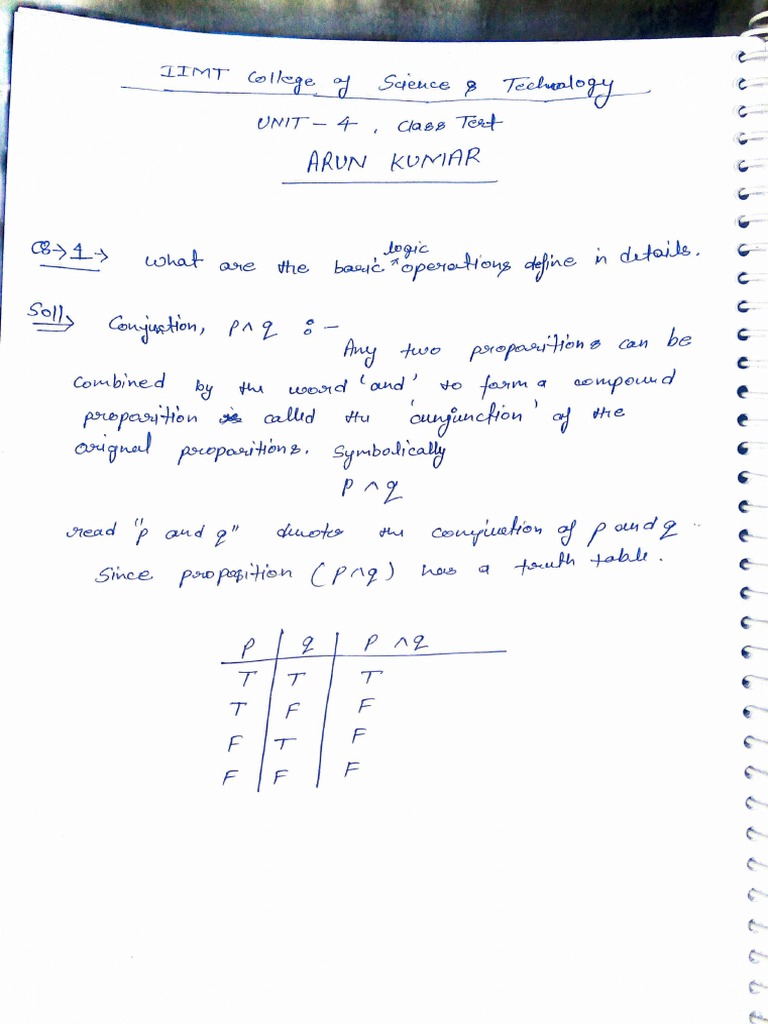 IIMT College of Science & Technology
UNIT - 4, Class Test
ARUN KUMAR
1 → What are the basic logic operations define in details.
Soll → Conjuction, p∧q :-
Any two propositions can be
combined by the word 'and' to form a compound
proposition called the 'cunjunction' of the
orignal propositions. Symbolically
P ∧ q
read "p and q" denotes the conjuction of p and q
Since proposition (p∧q) has a truth table.
P | q | P ∧q
T | T | T
T | F | F
F | T | F
F | F | F